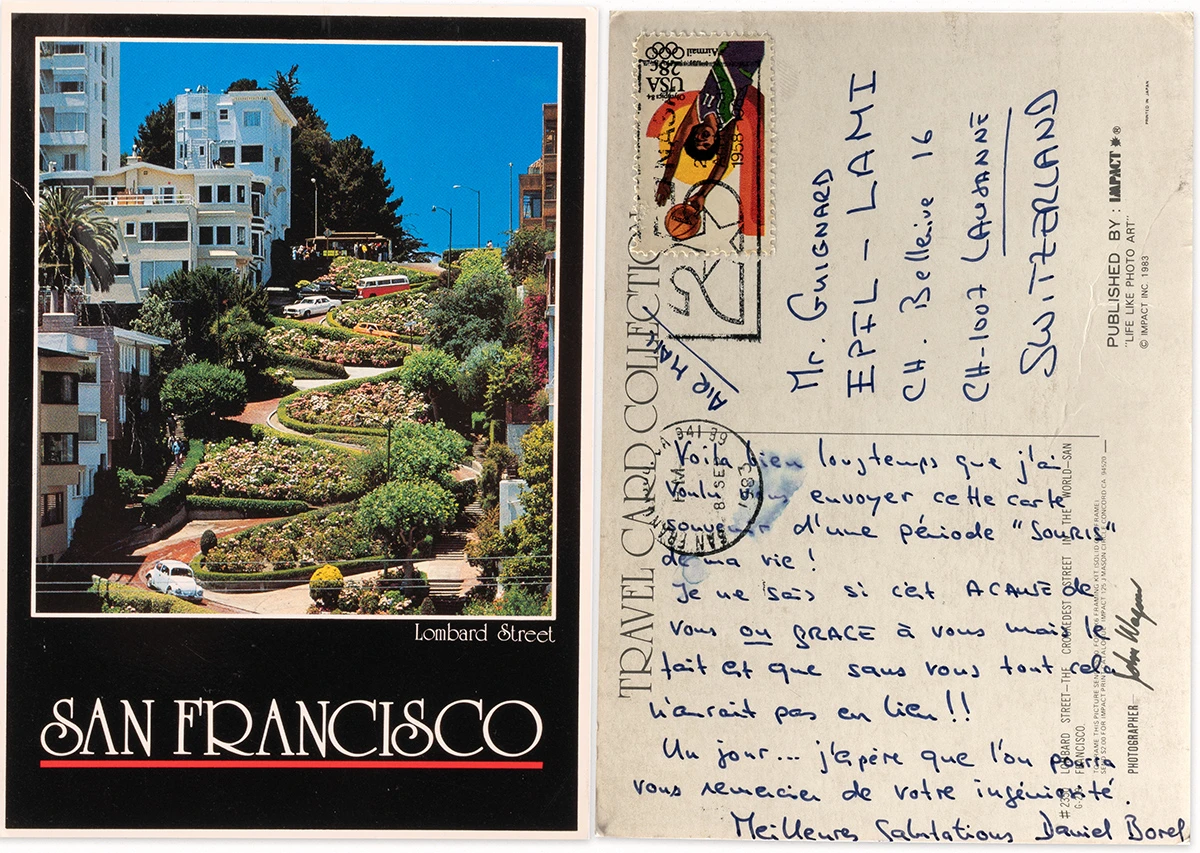 Lombard Street
SAN FRANCISCO
Olympics 84
USA
28c
Airmail
1958
AIR MAIL
Mr. GUIGNARD
EPFL – LAMI
CH. Bellerive 16
CH-1007 LAUSANNE
SWITZERLAND
PUBLISHED BY: IMPACT ®
"LIFE LIKE PHOTO ART"
© IMPACT INC 1983
PRINTED IN JAPAN
TRAVEL CARD COLLECTION
SAN FRAN
941 99
1983
Voilà bien longtemps que j'ai
voulu vous envoyer cette carte
souvenir d'une période "SOURIS"
de ma vie !
Je ne sais si c'est A CAUSE de
vous ou GRACE à vous mais le
fait est que sans vous tout cela
n'aurait pas eu lieu !!
Un jour... j'espère que l'on pourra
vous remercier de votre ingéniosité.
Meilleures Salutations Daniel Borel
LOMBARD STREET—THE CROOKEDEST STREET IN THE WORLD—SAN
FRANCISCO.
PHOTOGRAPHER— John Wagner